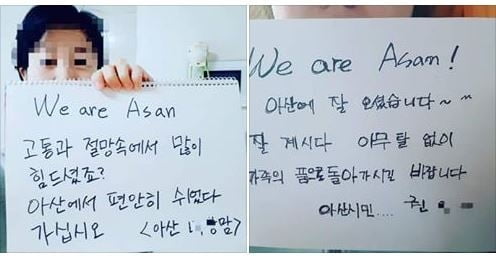 We are Asan
고통과 절망속에서 많이
힘드셨죠?
아산에서 편안히 쉬었다
가십시오 <아산 맘>
We are Asan!
아산에 잘 오셨습니다~^^
잘 계시다 아무탈 없이
가족의 품으로 돌아가시길 바랍니다
아산시민....